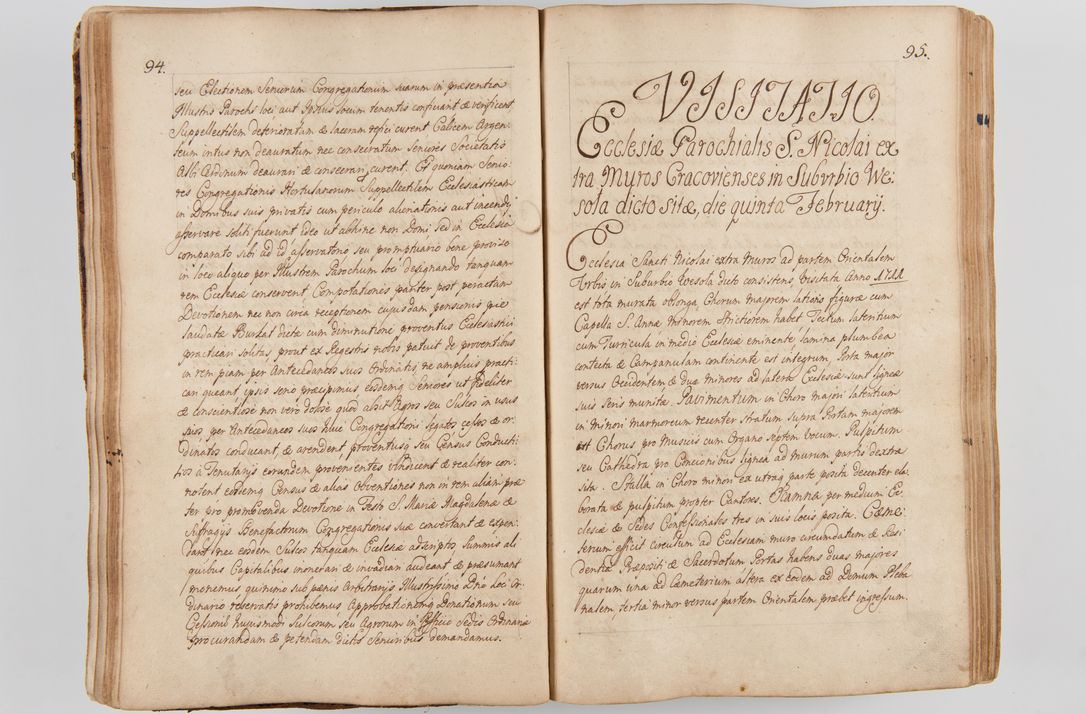 94.
seu Electionem Seniorum Congregationum suarum in præsentia
Illustris Parochi loci aut Ipsius locum tenentis conficiant & verificent
Suppellectilem deterioratam & laceram refici curent Calicem Argen¬
teum intus non deauratum nec consecratum Seniores Societatis
deaurari & consecrari curent. Et quoniam Senio¬
res Congregationis Hortulanorum Suppellectilem Ecclesiasticam
in Domibus suis privatis cum periculo alienationis aut incendij
asservare soliti fuerunt ideo ut abhinc non Domi sed in Ecclesia
comparato sibi ad id asservatorio seu promptuario bene proviso
in loco aliquo per Illustrem Parochum loci designando tanquam
rem Ecclesiæ conservent. Computationes pariter post peractam
Devotionem nec non circa receptionem cujusdam pensionis pie
laudatæ dictæ cum diminutione proventus Ecclesiastici
practicari solitas prout ex Regestris nobis patuit de proventibus
in rem piam per Antecedaneos suos Ordinatis, ne amplius practi¬
cari queant ipsis serio præcipimus eodemq; Seniores ut fideliter
& conscientiose non vero dolose quod absit Agros seu Sulcos in usus
suos per Antecedaneos suos suæ Congregationi legatos cessos & or
dinatos conducant, & arendent proventusq; seu Census Conducti
tios à Tenutarijs eorundem provenientes vindicent & realiter con¬
notent eosdemq; Census & alias obventiones non in rem aliam præ
ter pro promovenda Devotione in Festo S. Mariæ Magdalenæ &
Sufragijs Benefactorum Congregationis suæ convertant & expen¬
dant nec eosdem Sulcos tanquam Ecclesiæ adscriptos Summis ali
quibus Capitalibus onerari & invadiari audeant & præsumant
monemus quinimo sub pœnis Arbitrarijs Illustrissimo Dno Loci Or¬
dinario reservatis prohibemus Approbationemq; Donationum seu
Cessionis hujusmodi Sulcorum seu Agrorum in Officio Sedis Ordinariæ
procurandam & petendam dictis Senioribus demandamus.
95.
VISITATIO
Ecclesiæ Parochialis S. Nicolai ex
tra Muros Cracovienses in Suburbio We:
sola dicto sitæ, die quinta February.
Ecclesia Sancti Nicolai extra Muros ad partem Orientalem
Urbis in Suburbio Wesola dicto consistens, Visitata Anno 1711
est tota murata oblonga Chorum majorem latioris figuræ cum
Capella S. Annæ minorem strictiorem habet Tectum lateritium
cum Turricula in medio Ecclesiæ eminente lamina plumbea
contecta & Campanulam continente est integrum, Porta major
versus Occidentem & duæ minores ad latera Ecclesiæ sunt ligneæ
suis seris munitæ. Pavimentum in Choro majori lateritium
in minori marmoreum recenter stratum supra Portam majorem
est Chorus pro Musicis cum Organo septem vocum. Pulpitum
seu Cathedra pro Concionibus lignea ad murum partis dextræ
sita. Stalla in Choro minori ex utraq parte posita decenter ela
borata & pulpitum propter Cantores. Scamna per medium Ec¬
clesiæ & Sedes Confessionales tres in suis locis posita. Cæme¬
terium efficit circulum ad Ecclesiam muro circumdatum & Resi¬
dentiæ Præpositi & Sacerdotum Portas habens duas majores
quarum una ad Cæmeterium altera ex eodem ad Domum Pleba
nalem tertia minor versus partem Orientalem præbet ingressum.